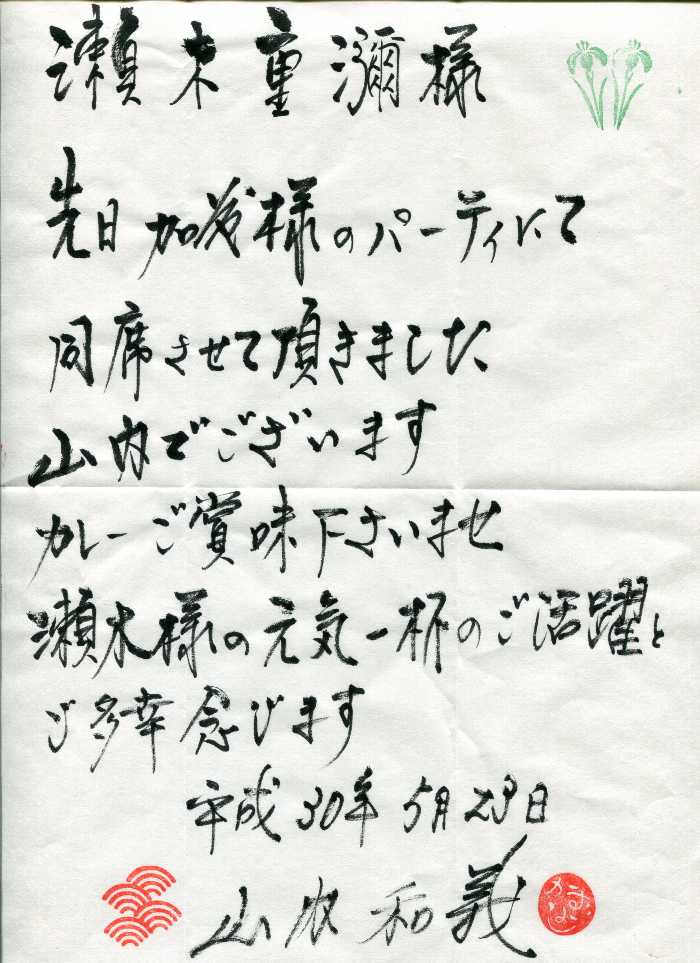 瀬木重彌様
先日加茂様のパーティにて
同席させて頂きました
山内でございます
カレーご賞味下さいませ
瀬木様の元気一杯のご活躍と
ご多幸念じます
平成30年5月23日
山内和義